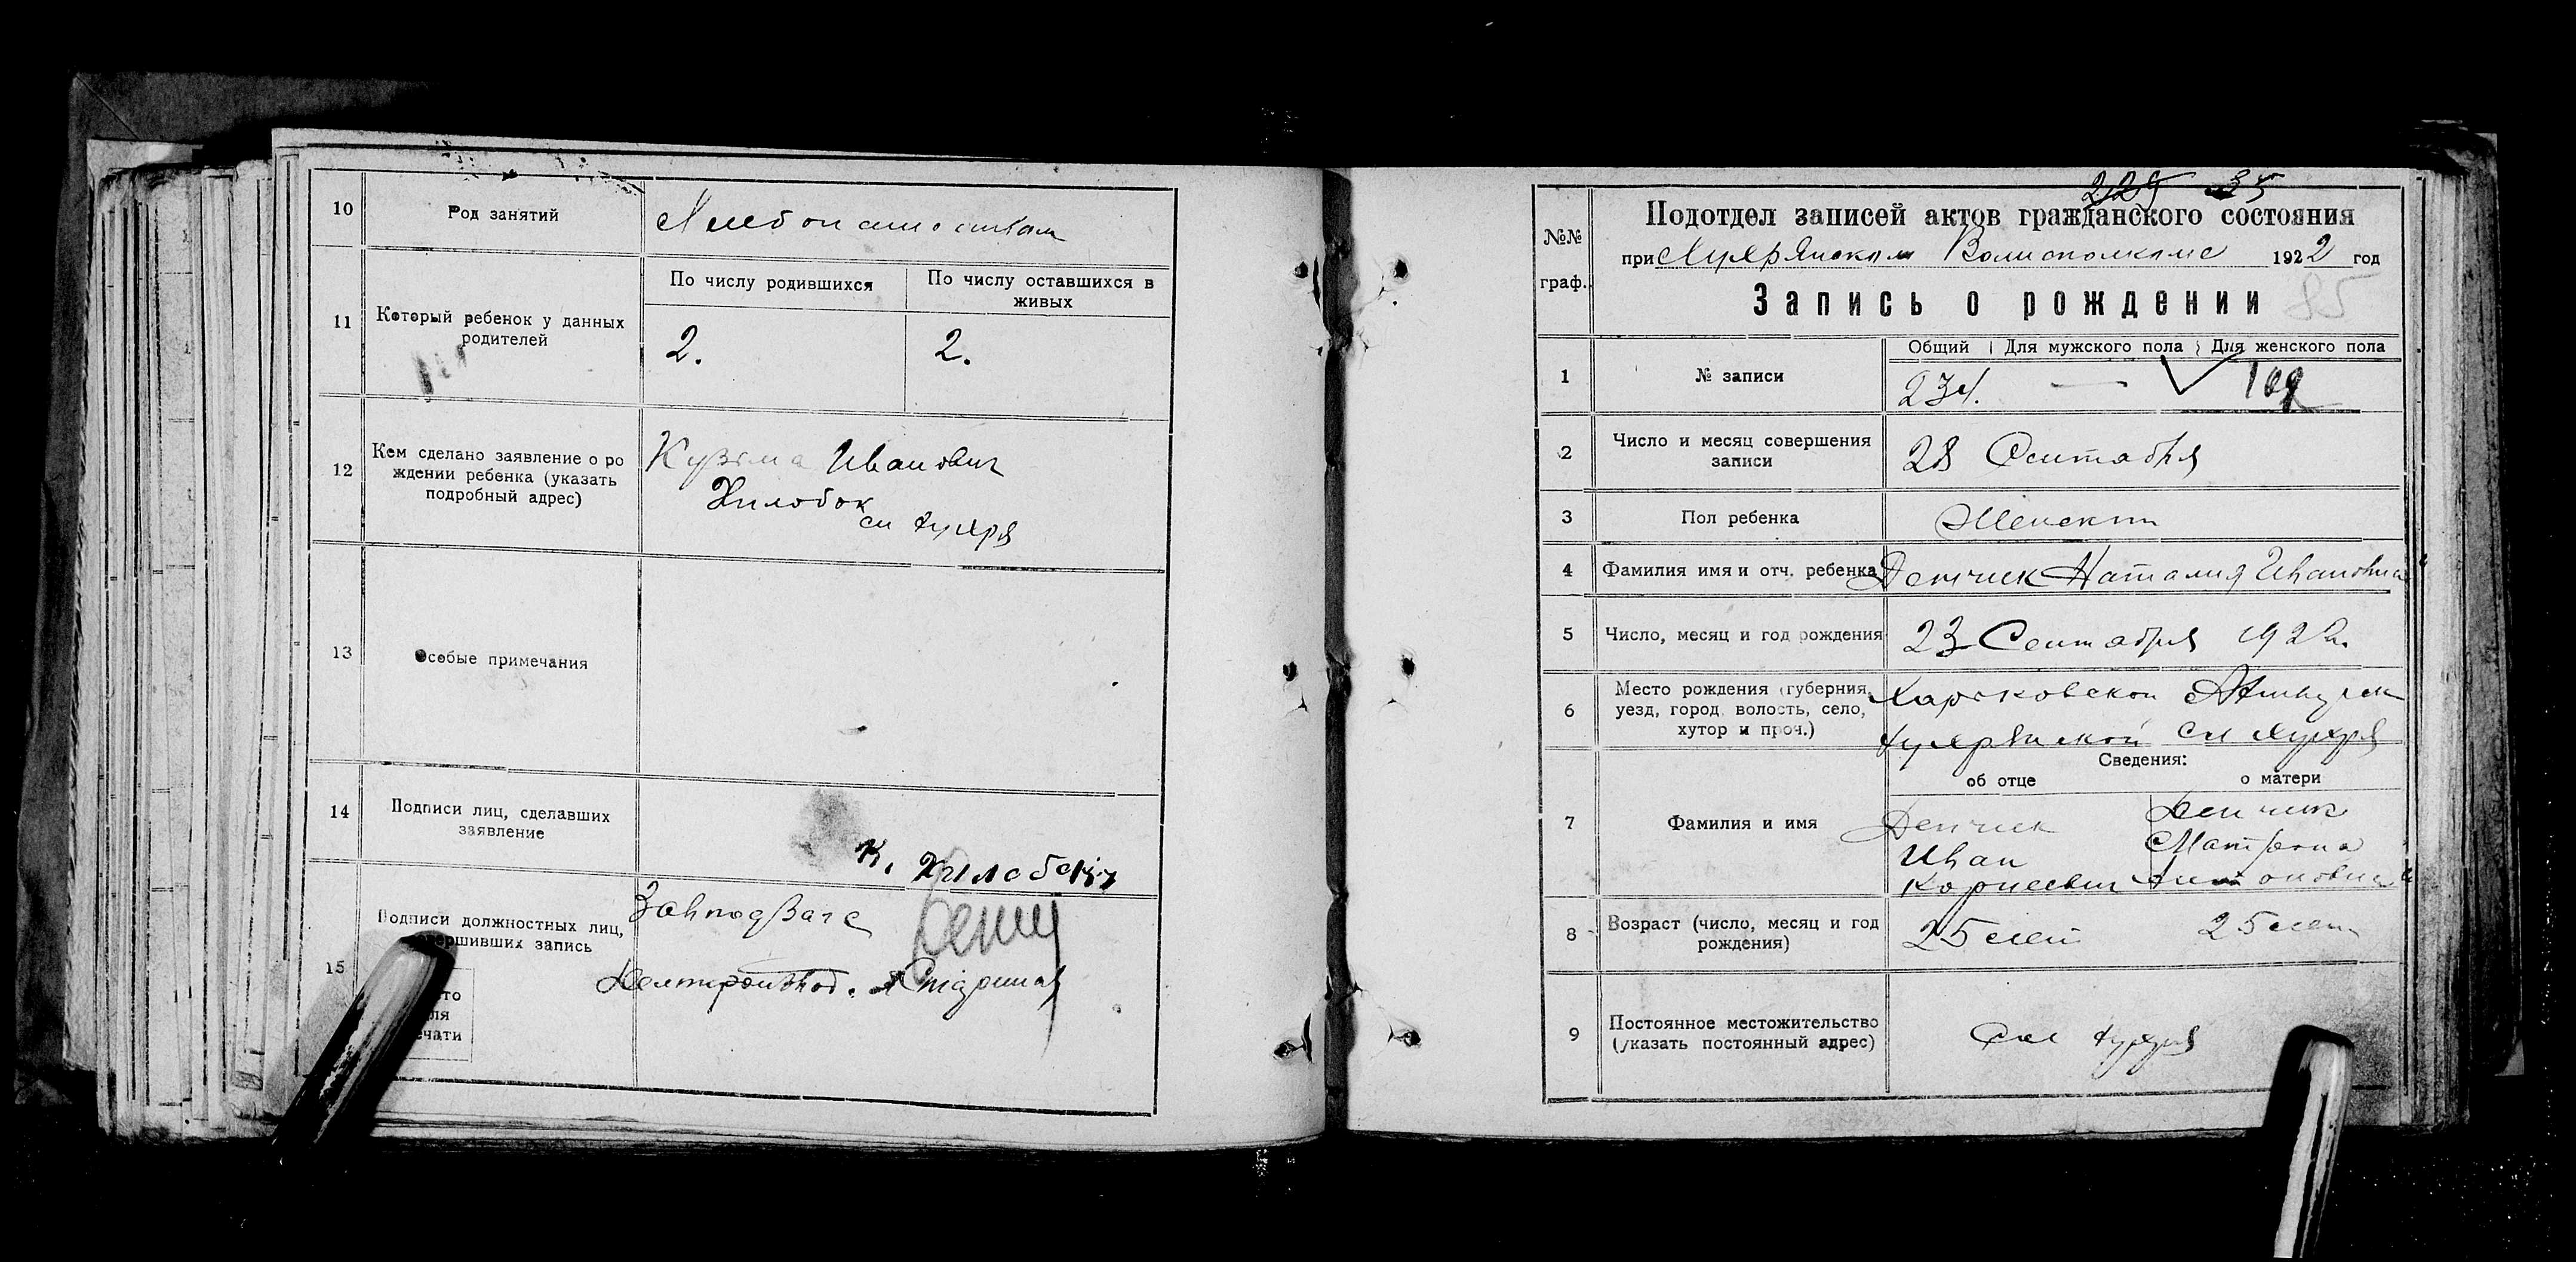 10
Род занятий
Хлебопашеством
11
Который ребенок у данных
родителей
По числу родившихся
По числу оставшихся в
живых
2.
2.
12
Кем сделано заявление о ро
ждении ребенка (указать
подробный адрес)
Кузьма Иванович
Хилобок
сл Хухря
13
Особые примечания
14
Подписи лиц, сделавших
заявление
К. Хилобокъ
15
Подписи должностных лиц,
совершивших запись
Завподзагс
№№
граф.
35
Подотдел записей актов гражданского состояния
при Хухрянском Волисполкоме 1922 год
Запись о рождении 85
1
№ записи
Общий
Для мужского пола
Для женского пола
234.
—
2
Число и месяц совершения
записи
28 Сентября
3
Пол ребенка
Женский
4
Фамилия имя и отч. ребенка
Демчик Наталия Ивановна
5
Число, месяц и год рождения
23 Сентября 1922
6
Место рождения (губерния,
уезд, город, волость, село,
хутор и проч.)
Харьковской
Хухрянской сл Хухря
7
Фамилия и имя
Сведения:
об отце
о матери
Демчик
Иван
Корнеевич
Демчик
Матрона
Антоновна
8
Возраст (число, месяц и год
рождения)
25 лет
25 лет
9
Постоянное местожительство
(указать постоянный адрес)
Сл Хухря